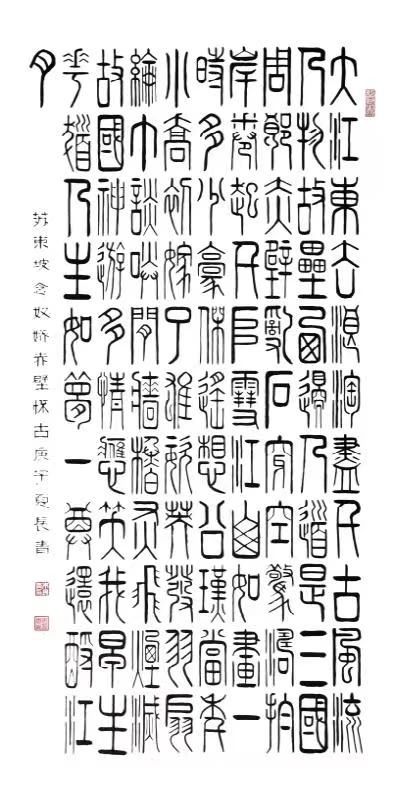 大江東去浪淘盡千古風流
人物故壘西邊人道是三國
周郎赤壁亂石穿空驚濤拍
岸卷起千堆雪江山如畫一
時多少豪傑遙想公瑾當年
小喬初嫁了雄姿英發羽扇
綸巾談笑間牆櫓灰飛煙滅
故國神遊多情應笑我早生
華髮人生如夢一尊還酹江
月
苏東坡念奴娇赤壁怀古庚子夏長青